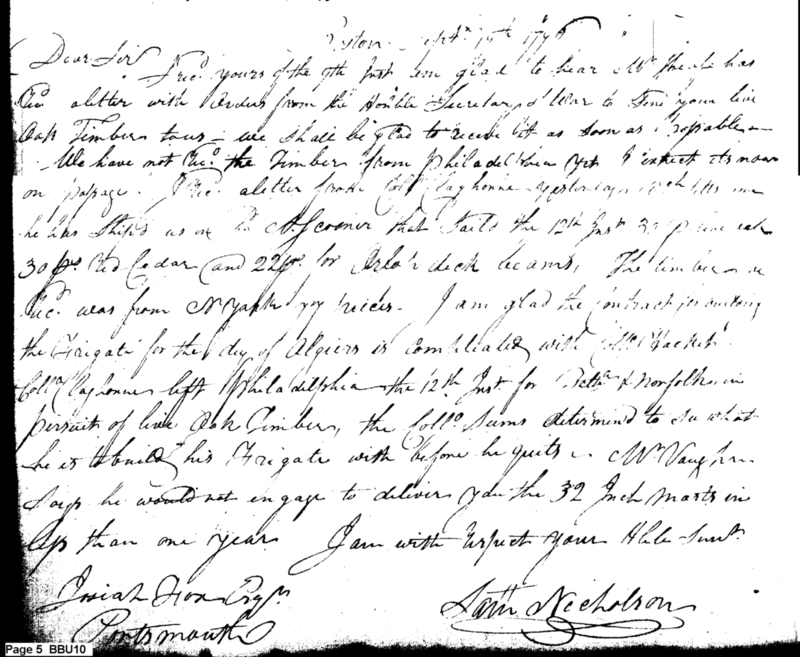 Boston Septr 15th 1796
Dear Sir I recd yours of the 9th Inst am glad to hear Mr has
Recd a letter with Orders from the Honble Secretary of War to Send your live
Oak Timber to us - we shall be glad to receive it as soon as possable -
We have not Recd the Timber from Philadelphia yet I expect its now
on passage. I Recd a letter from Collo Claghorne yesterday tells me
he has Ship'd us on Bd A Scooner that Sail'd the 12th Inst 30 live oak
30 ps Red Cedar and 22 ps for Orlop deck beams, The timber we
Recd was from N York pieces. I am glad the Contract for building
the Frigate for the dey of Algiers is compleated with Collo Hackett
Collo Claghorne left Philadelphia the 12th Inst for & Norfolk in
pursuit of live Oak Timber, the Collo Seems determend to see what
he is to build his Frigate with before he quits - Mr Vaughan
Says he would not engage to deliver you the 32 Inch Masts in
less than one year I am with respect your Hble Servt
Josiah Fox Esqr
Saml Nicholson
Portsmouth
Page 5 BBU10